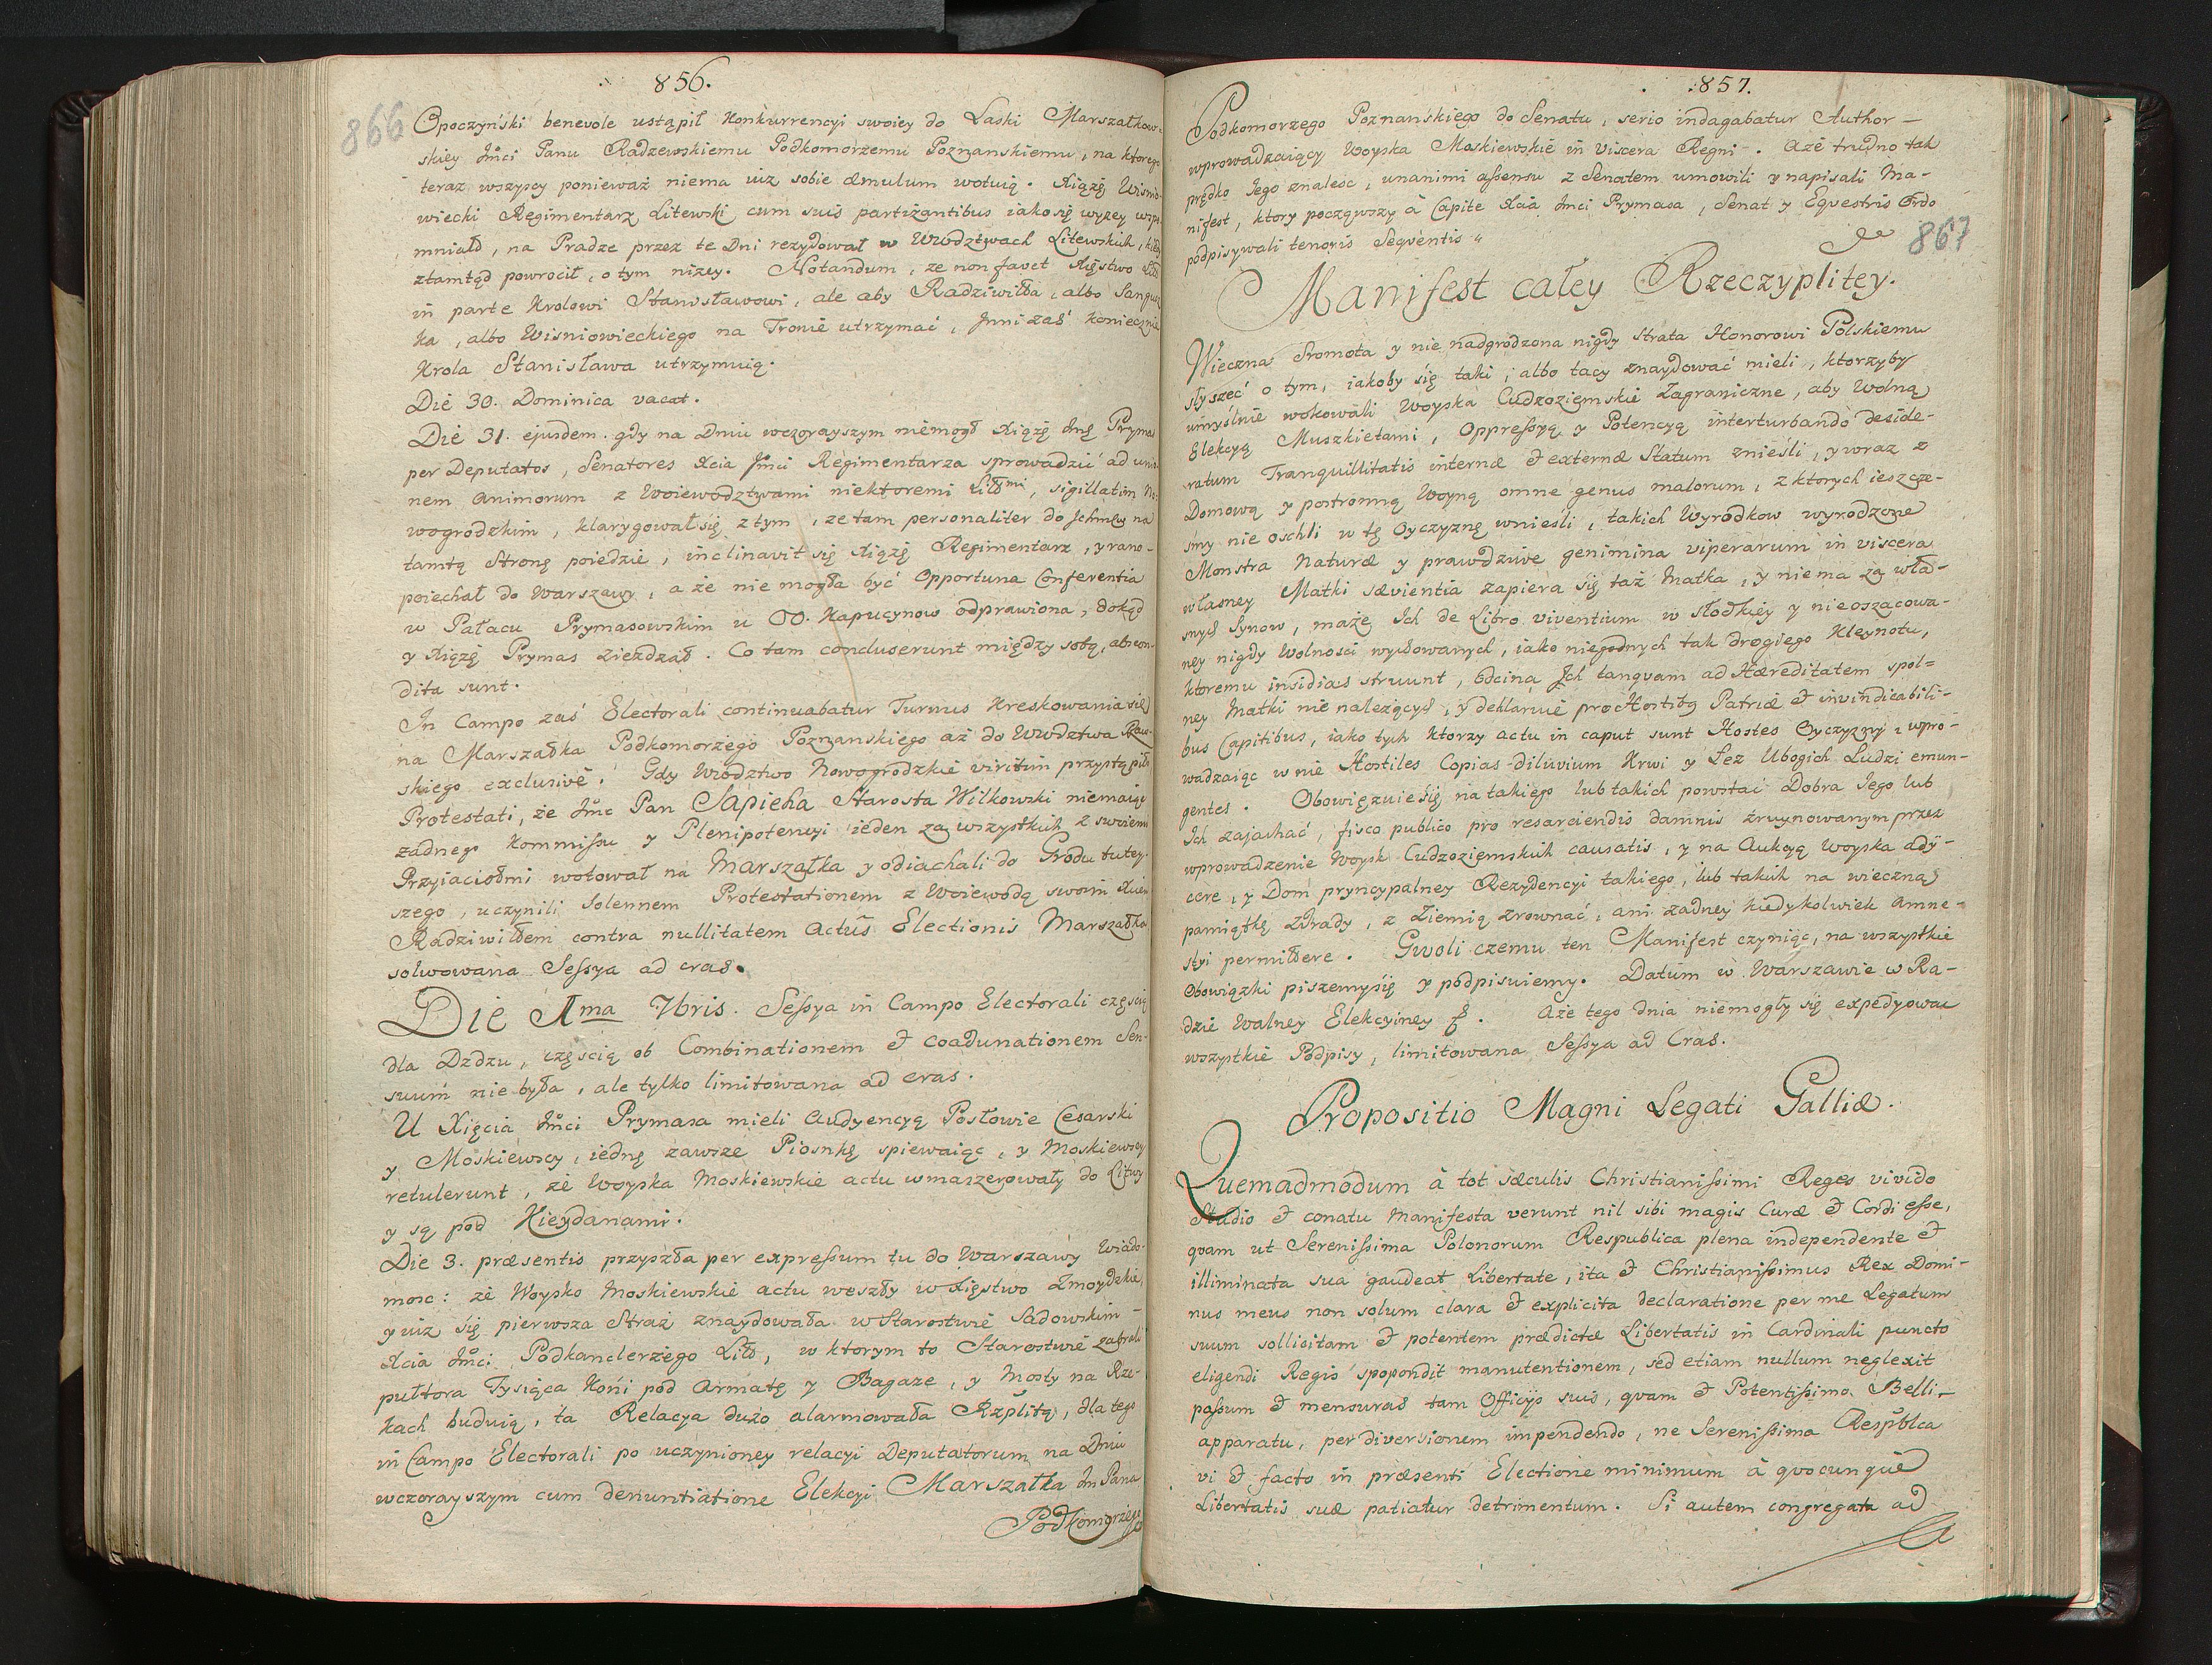 856.
866
Opoczyński benevole ustąpił Konkurrencyi swoiey do Laski Marszałkow-
skiey Jmci Panu Radzewskiemu Podkomorzemu Poznanskiemu, na ktorego
teraz wszyscy ponieważ niema iuz sobie æmulum wotuią. Xiąże Wisnio-
wiecki Regimentarz Litewski cum suis partizantibus iako się wyzey wspo
mniało, na Pradze przez te Dni rezydował w Wwdztwach Litewskich,
ztamtąd powrocił, o tym nizey. Notandum, ze non favet Xięstwo Litt
in parte Krolowi Stanisławowi, ale aby Radziwiłła, albo Sangusz
ka, albo Wisniowieckiego na Tronie utrzymać, Jnni zaś koniecznie
Krola Stanisława utrzymuią.
Die 30. Dominica vacat.
Die 31. ejusdem. gdy na Dniu wczorayszym niemogł Xiążę Jmę Prymas
per Deputatos, Senatores Xcia Jmci Regimentarza sprowadzić ad unio
nem animorum z Woiewodztwami niektoremi Litt mi, sigillatim No-
wogrodzkim, klarygował się z tym, ze tam personaliter do Jchmciow na
tamtą Stronę poiedzie, inclinavit się Xiążę Regimentarz, y rano-
poiechał do Warszawy, a że nie mogła być Opportuna Conferentia
w Pałacu Prymasowskim u OO. Kapucynow odprawiona, dokąd
y Xiążę Prymas ziezdzał. Co tam concluserunt między sobą, abscon-
dita sunt.
In Campo zaś Electorali continuabatur Turnus Kreskowania się
na Marszałka Podkomorzego Poznanskiego aż do Wwdztwa Raw-
skiego exclusivè. Gdy Wwdztwo Nowogrodzkie viritim przystąpiło
Protestati, że Jmc Pan Sapieha Starosta Wilkowski niemaiąc
zadnego Kommissu y Plenipotencyi ieden za wszystkich z swoiemi
Przyiaciołmi wotował na Marszałka y odiachali do Grodu tutey-
szego, uczynili solennem Protestationem z Woiewodą swoim Xciem
Radziwiłłem contra nullitatem Actûs Electionis Marszałka
solwowana Sessya ad cras.
Die 1ma 7bris. Sessya in Campo Electorali częscią
dla Dżdzu, częscią ob Combinationem et coadunationem Sen-
suum nie była, ale tylko limitowana ad cras.
U Xięcia Jmci Prymasa mieli Audyencyą Posłowie Cesarski
y Moskiewscy, iednę zawsze Piosnkę spiewaiąc, y Moskiewscy
retulerunt, że Woyska Moskiewskie actu wmaszerowały do Litwy
y są pod Kieydanami.
Die 3. præsentis przyszła per expressum tu do Warszawy Wiado-
mosc: ze Woysko Moskiewskie actu weszły w Xięstwo Zmoydzkie,
y iuz się pierwsza Straż znaydowała w Starostwie Sadowskim-
Xcia Jmci Podkanclerzego Litt, w ktorym to Starostwie zabrali
pułtora Tysiąca Koni pod Armatę y Bagaze, y Mosty na Rze-
kach buduią, ta Relacya duzo alarmowała Rzplitą, dla tego
in Campo Electorali po uczynioney relacyi Deputatorum na Dniu
wczorayszym cum denuntiatione Elekcyi Marszałka Jm Pana
Podkomorzego
857.
867
Podkomorzego Poznanskiego do Senatu, serio indagabatur Author-
wprowadzaiący Woyska Moskiewskie in viscera Regni. Aże trudno tak
prędko Jego znaleść, unanimi assensu z Senatem umowili y napisali Ma-
nifest, ktory począwszy à Capite Xcia Jmci Prymasa, Senat y Eqvestris Ordo
podpisywali tenoris Seqventis
Manifest całey Rzeczyplitey.
Wieczna Sromota y nie nadgrodzona nigdy Strata Honorowi Polskiemu
słyszeć o tym, iakoby się taki, albo tacy znaydować mieli, ktorzyby
umyślnie wokowali Woyska Cudzoziemskie Zagraniczne, aby Wolną
Elekcyą Muszkietami, Oppressyą y Potencyą interturbando deside-
ratum Tranquillitatis internæ et externæ Statum znieśli, y wraz z
Domową y postronną Woyną omne genus malorum, z ktorych ieszcze-
smy nie oschli w tę Oyczyznę wnieśli, takich Wyrodkow wyrodzone
Monstra Naturæ y prawdziwe genimina viperarum in viscera
własney Matki sævientia zapiera się taż Matka, y nie ma za wła-
snych Synow, maże Jch de Libro viventium w słodkiey y nieoszacowa-
ney nigdy Wolnosci wychowanych, iako niegodnych tak drogiego Kleynotu,
ktoremu insidias struunt, odcina Jch tanquam ad Hæreditatem spol-
ney Matki nie nalezących, y deklaruie pro Hostibq Patriæ et invindicabili-
bus Capitibus, iako tych ktorzy actu in caput sunt Hostes Oyczyzny, wpro-
wadzaiąc w nie Hostiles Copias diluvium Krwi y Łez Ubogich Ludzi emun-
gentes. Obowięzuie się na takiego lub takich powstać Dobra Jego lub
Jch zajachać, fisco publico pro resarciendis damnis zruynowanym przez
wprowadzenie Woysk Cudzoziemskich causatis, y na Aukcyą Woyska ady-
cere, y Dom pryncypalney Rezydencyi takiego, lub takich na wieczną
pamiątkę Zdrady, z Ziemią zrownać, ani zadney kiedykolwiek Amne-
styi permittere. Gwoli czemu ten Manifest czyniąc, na wszystkie
Obowiązki piszemy się y podpisuiemy. Datum w Warszawie w Ra-
dzie Walney Elekcyiney. Aże tego dnia niemogły się expedyować
wszystkie Podpisy, limitowana Sessya ad Cras.
Propositio Magni Legati Galliæ.
Quemadmodum à tot sæculis Christianissimi Reges vivido
Studio et conatu Manifesta verunt nil sibi magis Curæ et Cordi esse,
qvam ut Serenissima Polonorum Respublica plena independente et
illiminata sua gaudeat Libertate, ita et Christianissimus Rex Domi-
nus meus non solum clara et explicita declaratione per me Legatum
suum sollicitam et potentem prædictæ Libertatis in Cardinali puncto
eligendi Regis spopondit manutentionem, sed etiam nullum neglexit
passum et mensuras tam Officijs suis, qvam et Potentissimo Belli-
apparatu, per diversionem impendendo, ne Serenissima Respublca
vi et facto in præsenti Electione minimum à qvocunque
Libertatis suæ patiatur detrimentum. Si autem congregata ad